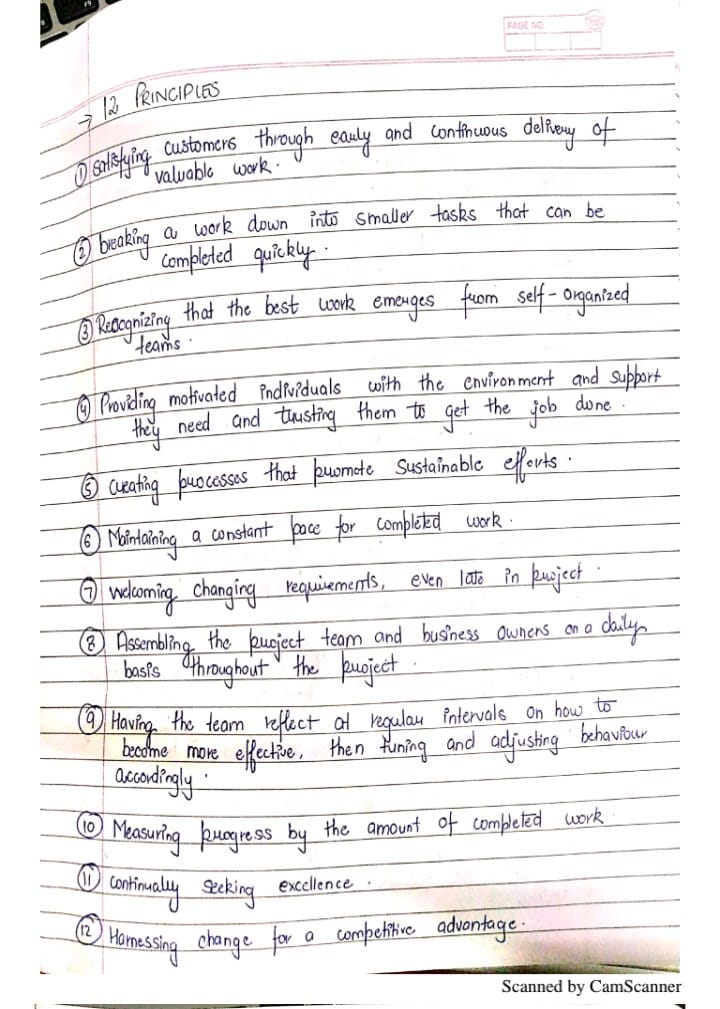 PAGE NO
→ 12 PRINCIPLES
① Satisfying customers through early and continuous delivery of
valuable work.
② breaking a work down into smaller tasks that can be
completed quickly.
③ Recognizing that the best work emerges from self-organized
teams.
④ Providing motivated individuals with the environment and support
they need and trusting them to get the job done.
⑤ creating processes that promote sustainable efforts.
⑥ Maintaining a constant pace for completed work.
⑦ welcoming changing requirements, even late in project.
⑧ Assembling the project team and business owners on a daily
basis throughout the project.
⑨ Having the team reflect at regular intervals on how to
become more effective, then tuning and adjusting behaviour
accordingly.
⑩ Measuring progress by the amount of completed work
⑪ continually seeking excellence.
⑫ Harnessing change for a competitive advantage.
Scanned by CamScanner